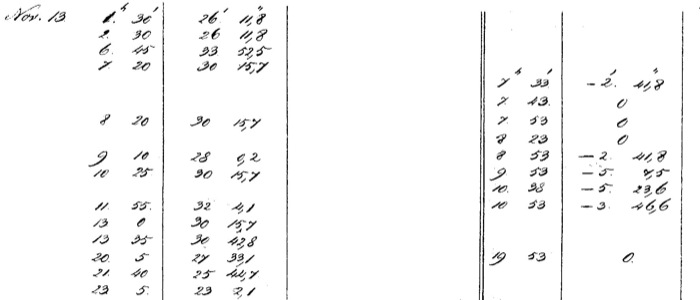 Nov. 13 1. h 30' 26' 11,8"
2. 30 26 11,8
6. 45 33 52,5
7 20 30 15,7
7 h 33' - 2.' 41,8"
7. 43. 0
7. 53 0
8 20 30 15,7
8 23 0
9 10 28 9,2
8 53 - 2. 41,8
10 25 30 15,7
9 53 - 5.
10. 38 - 5. 23,6
11. 55. 32 4,1
10 53 - 3. 46,6
13 0 30 15,7
13 35 30 42,8
20. 5 27 33,1
19 53 0.
21 40 25 44,7
23 5. 23 2,1